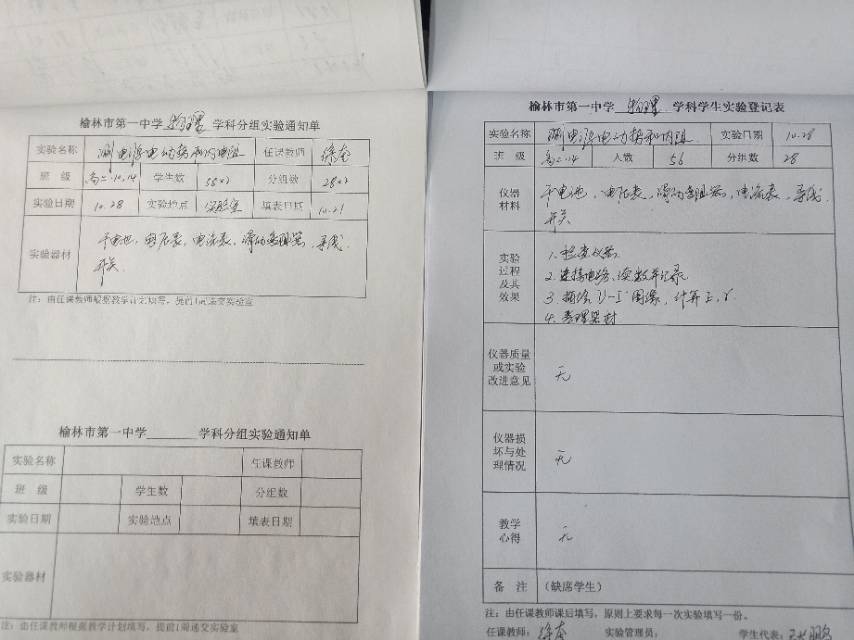 榆林市第一中学 物理 学科分组实验通知单
实验名称 测电源电动势和内电阻 任课教师
班 级 高二.10.14 学生数 56×2 分组数 28×2
实验日期 10.28 实验地点 实验室 填表日期 10.21
实验器材 干电池、电压表、电流表、滑动变阻器、导线
开关
注:由任课教师根据教学计划填写,提前1周递交实验室
榆林市第一中学 学科分组实验通知单
实验名称 任课教师
班 级 学生数 分组数
实验日期 实验地点 填表日期
实验器材
注:由任课教师根据教学计划填写,提前1周递交实验室
榆林市第一中学 物理 学科学生实验登记表
实验名称 测电源电动势和内阻 实验日期 10.28
班 级 高二.14 人数 56 分组数 28
仪器
材料
干电池、电压表、滑动变阻器、电流表、导线
开关
实验
过程
及其
效果
1. 检查仪器
2. 连接电路、读数并记录
3. 描绘U-I图像,计算E,r
4. 整理器材
仪器质量
或实验
改进意见
无
仪器损
坏与处
理情况
无
教学
心得
无
备 注 (缺席学生)
注:由任课教师课后填写,原则上要求每一次实验填写一份。
任课教师: 实验管理员: 学生代表: